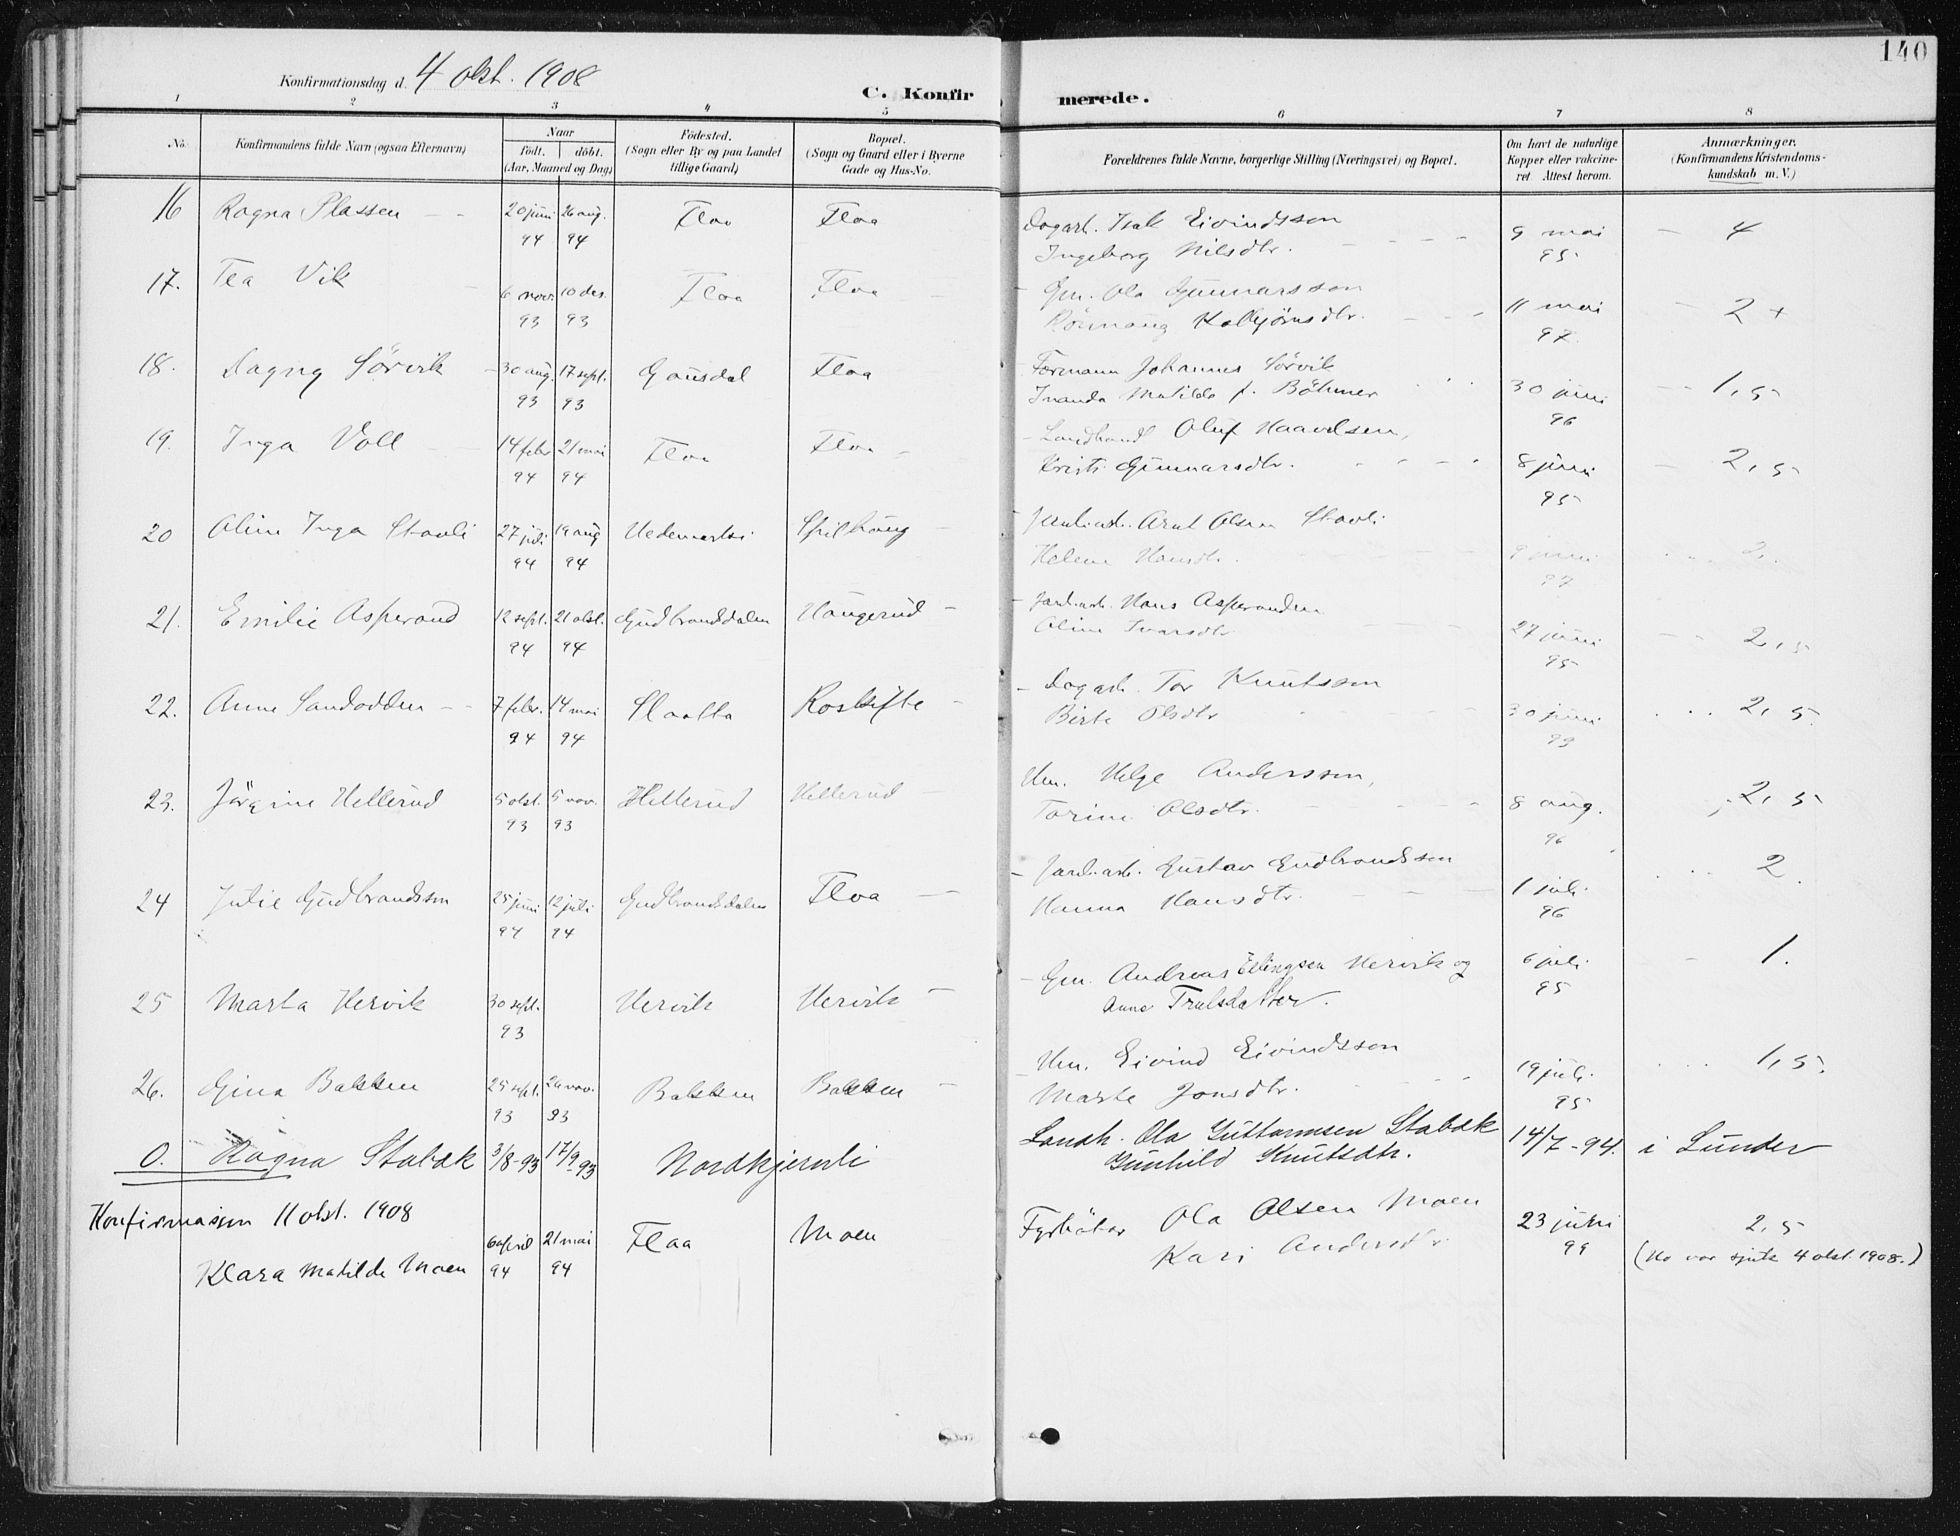 140
Konfirmationsdag d. 4 okt. 1908
C. Konfirmerede.
1 2 3 4 5 6 7 8
No. Konfirmandens fulde Navn (ogsaa Efternavn)
Naar födt. döbt. (Aar, Maaned og Dag)
Födested. (Sogn eller By og paa Landet tillige Gaard)
Bopæl. (Sogn og Gaard eller i Byerne Gade og Hus-No.
Forældrenes fulde Navne, borgerlige Stilling (Næringsvei) og Bopæl.
Om havt de naturlige Kopper eller vakcineret. Attest herom.
Anmærkninger. (Konfirmandens Kristendomskundskab m. V.)
16 Ragna Plassen 20 juni 94 26 aug. 94 Flaa Flaa Dagarb. Isak Eivindsson 9 mai 95 4
Ingeborg Nilsdtr.
17. Tea Vik 6 nov. 93 10 des. 93 Flaa Flaa Gm. Ola Gunnarsson 11 mai 97. 2+
Kolbjørnsdtr.
18. Dagny Sörvik 30 aug. 93 17 sept. 93 Gausdal Flaa Formann Johannes Sörvik 30 juni 96 1,5
Matilde f. Böhmer
19. Inga Voll 14 febr 94 21 mai 94 Flaa Flaa Landhand. Oluf Haavelsen, 8 juni 95 2,5
Kristi Gunnarsdtr.
20 Aline Inga Stavli 27 juli 94 19 aug 94 Hedemarken Spilhaug Jarnb.arb. Arnt Olsen Stavli 9 juni 97 2.
Helene Hansdtr.
21. Emilie Asperand 12 sept. 94 21 okt. 94 Gudbrandsdalen Haugerud Jarnb.arb. Hans Asperanden 27 juni 95 2,5
Aline Ivarsdtr
22. Anne Sandodden 7 febr. 94 14 mai 94 Slaatta Roskifte Dagarb. Tor Knutsson 30 juni 99 2,5.
Birte Olsdtr
23. Jörgine Hellerud 5 okt. 93 5 nov. 93 Hellerud Hellerud Hm. Helge Andersson, 8 aug. 96 2,5
Torine Olsdtr.
24 Julie Gudbrandsson 25 juni 94 12 juli 94 Gudbrandsdalen Flaa Jarnb.arb. Gustav Gudbrandsson 1 juli 96 2.
Hanna Hansdtr.
25 Marta Hervik 30 sept. 93 Hervik Hervik Gm. Andreas Ellingsen Hervik og 6 juli 95 1.
Anne Trulsdatter.
26. Gina Bakken 25 sept. 93 26 nov. 93 Bakken Bakken Hm. Eivind Eivindsson 19 juli. 95 1,5.
Marte Jonsdtr.
O. Ragna Stabæk 3/8-93 17/9 93 Nordkjernli Landh. Ola Guttormsen Stabæk 14/7-94. i Lunder
Gunhild Knutsdtr.
Konfirmasjon 11 okt. 1908
Klara Matilde Moen 6 april 94 21 mai 94 Flaa Moen Fyrbötar Ola Olsen Moen 23 juni 99 2,5
Kari Andersdtr (Ho var sjuk 4 okt. 1908.)